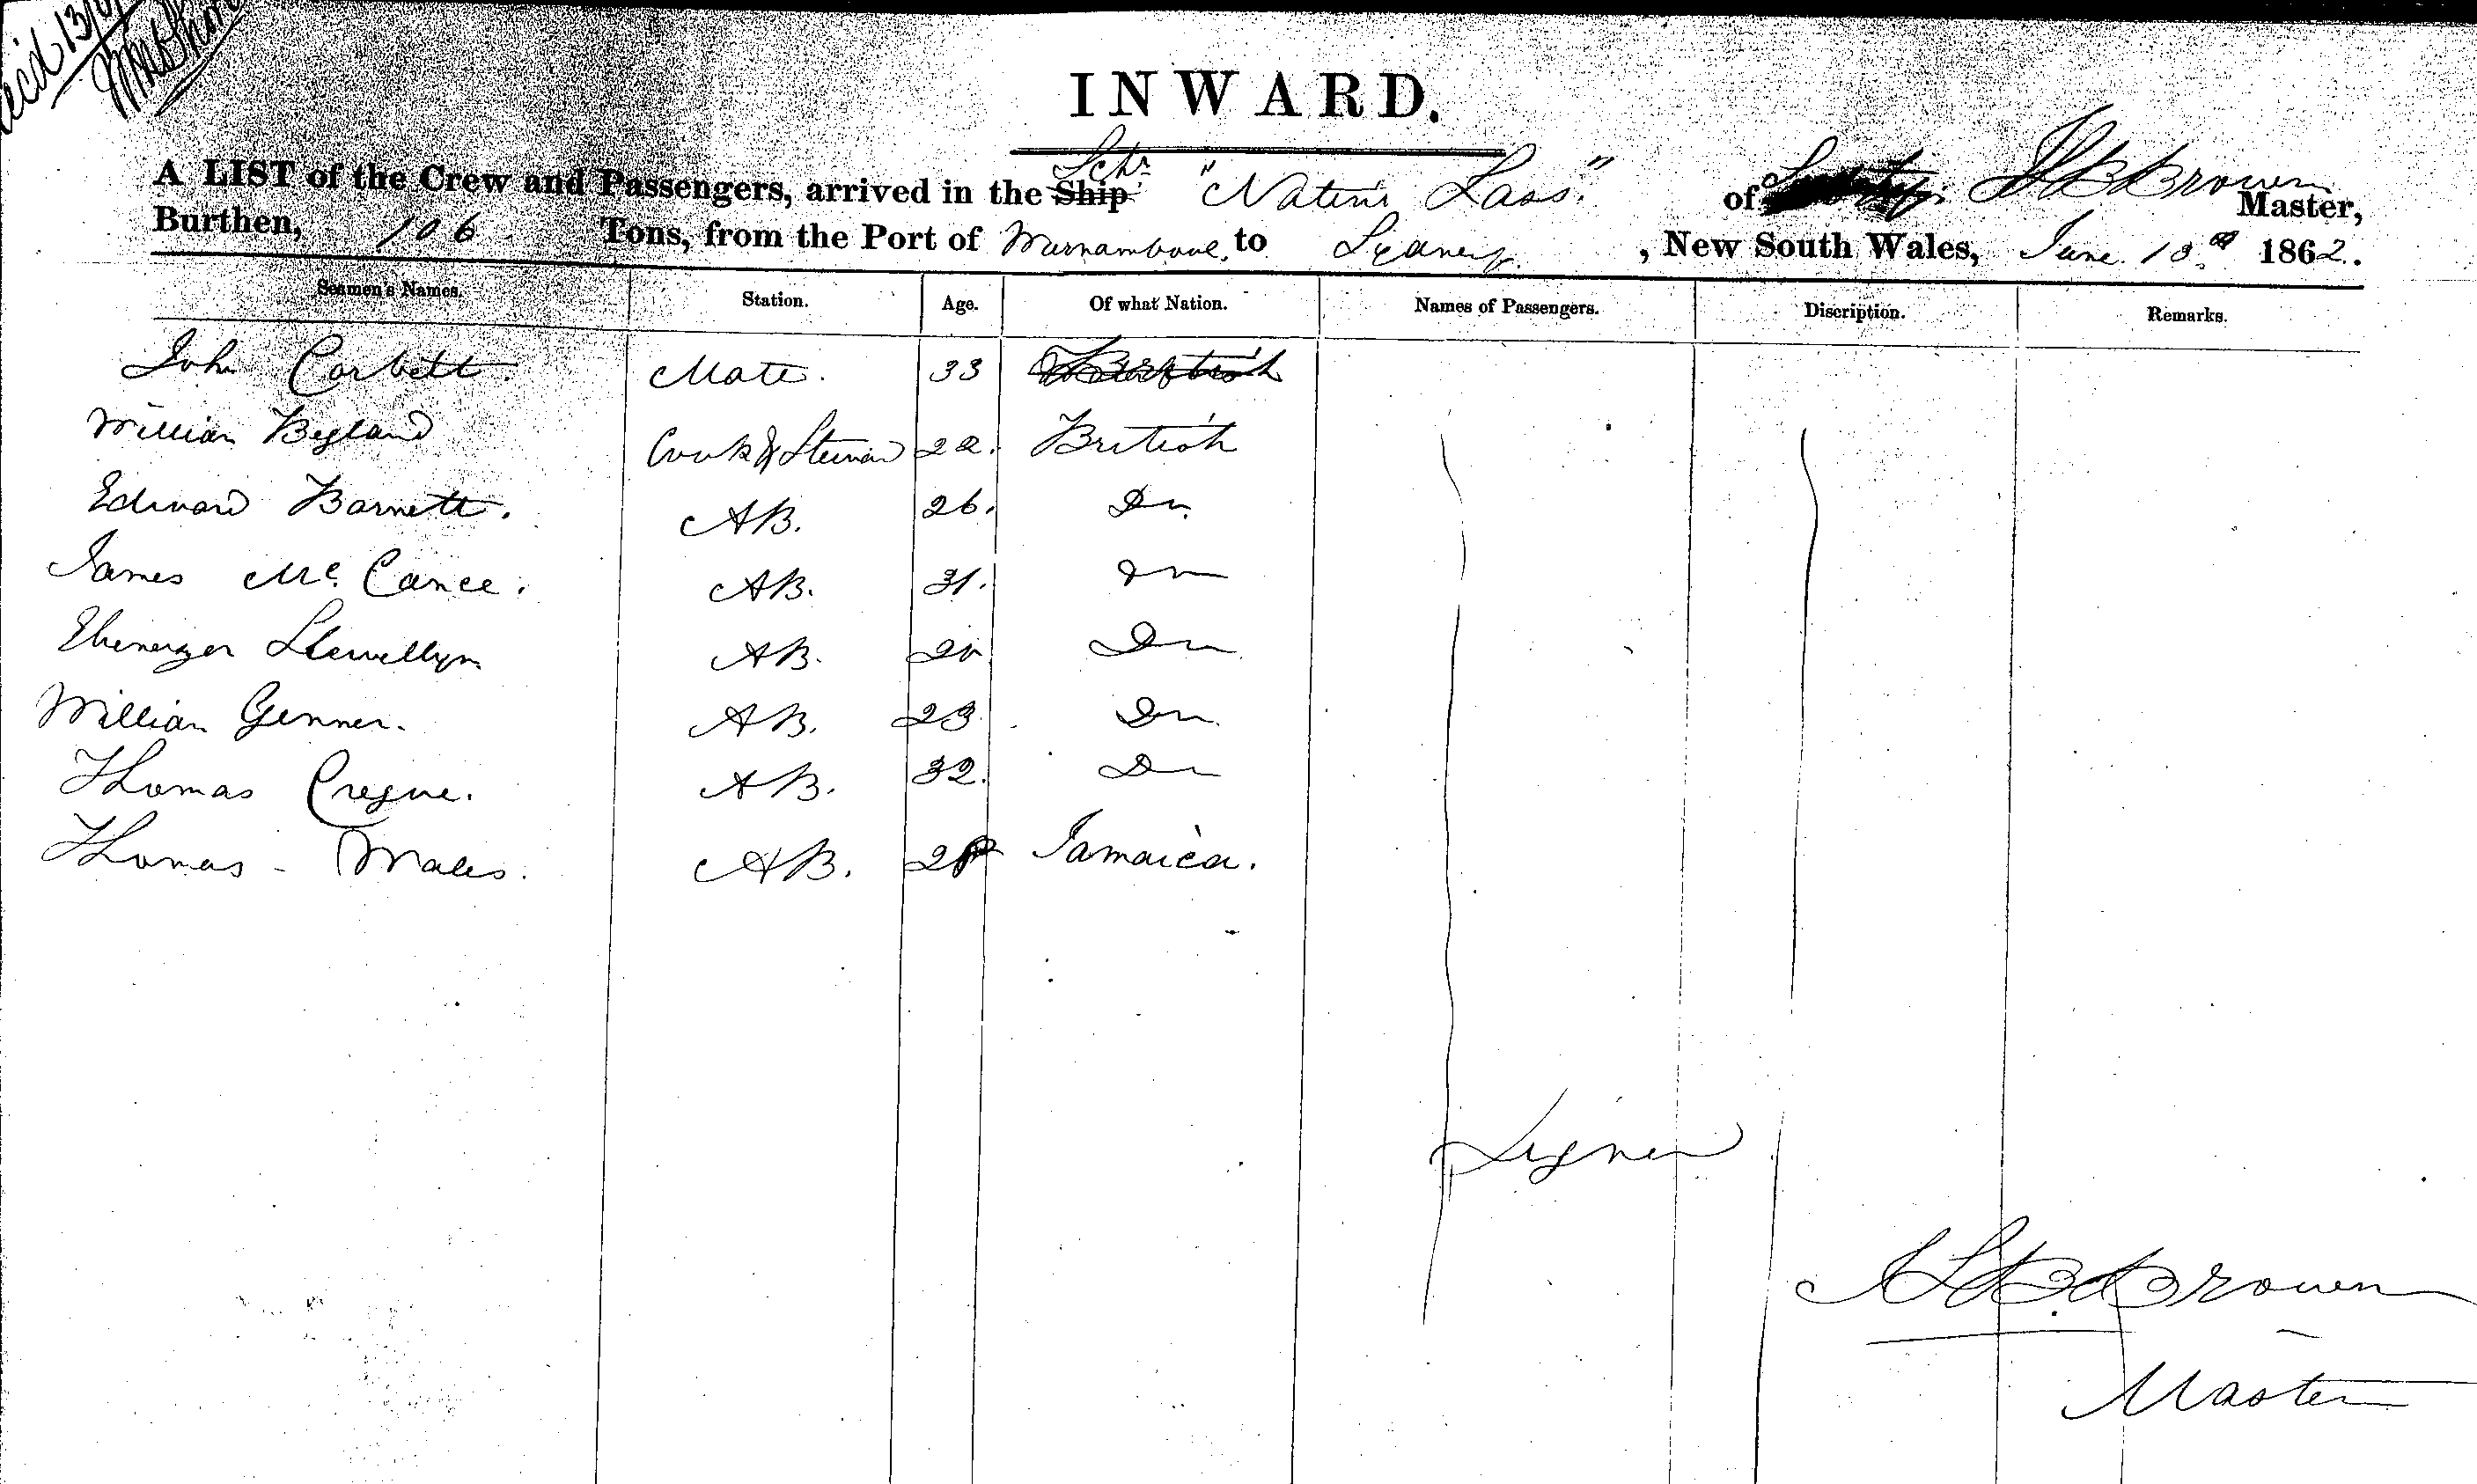 INWARD.
A LIST of the Crew and Passengers, arrived in the Ship Schr "Native Lass." of Brown Master,
Burthen, 106 Tons, from the Port of Warnambool, to Sydney , New South Wales, June 13th 1862.
Seamen's Names. Station. Age. Of what Nation. Names of Passengers. Discription. Remarks.
John Corbett. Mate. 33 British
William Bygland Cook & Steward 22. British
Edward Barnett. AB. 26. Do
James McCance. AB. 31. Do
Ebenezer Llewellyn AB. 20 Do
William Genner. AB. 23 Do
Thomas Cregne. AB. 32. Do
Thomas Males. AB. Jamaica.
Signed
Brown
Master